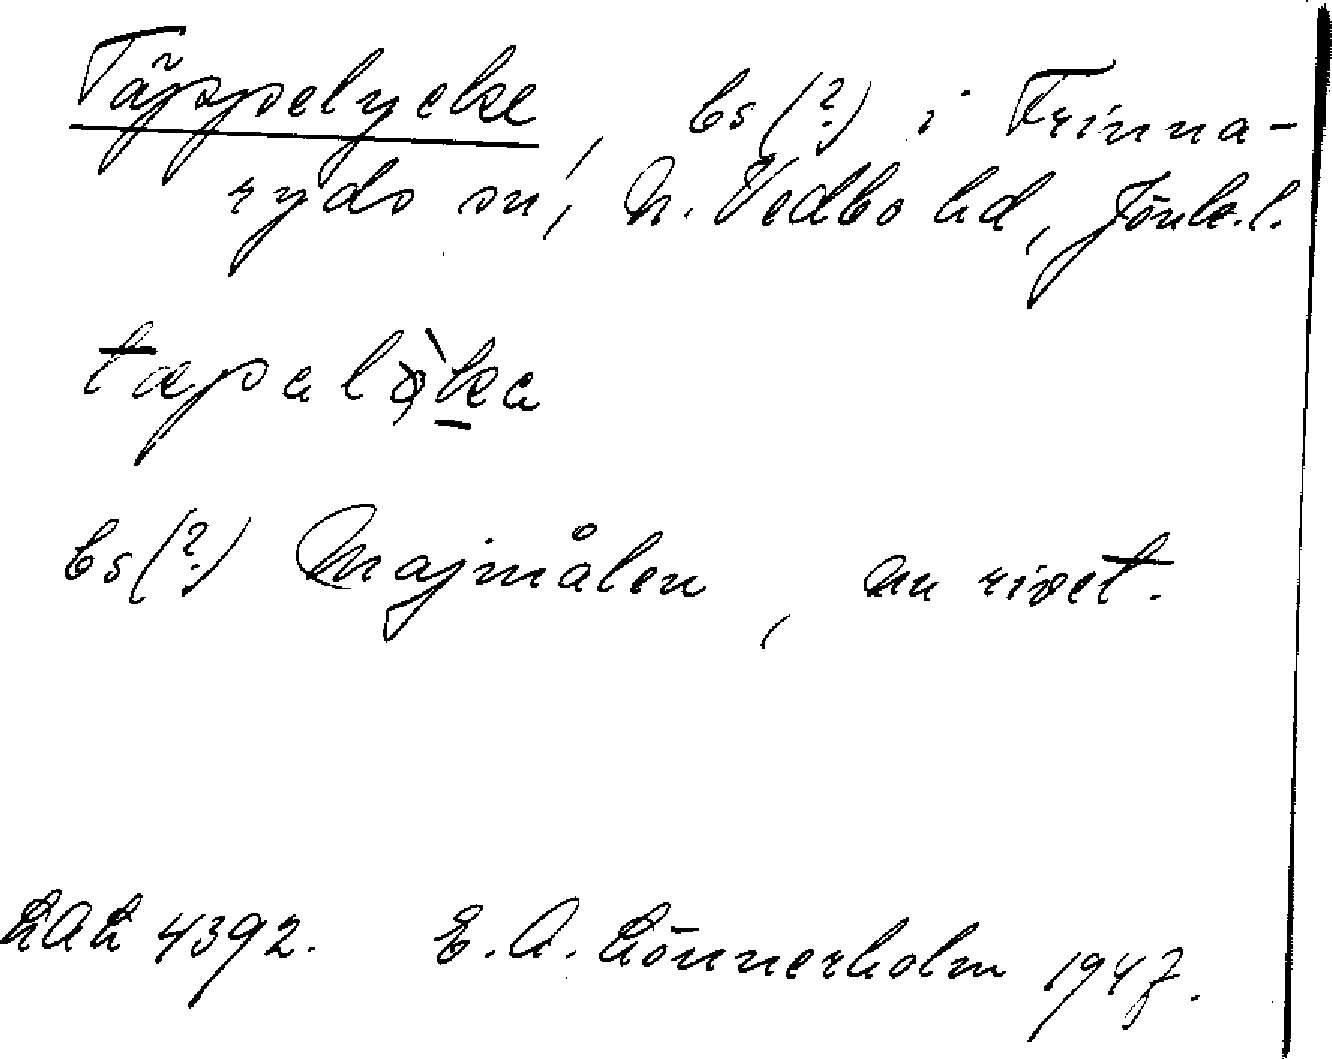 Täppelycke, bs(?) i Frinna-
ryds sn, N. Vedbo hd, Jönk.l.
tæpalø̀ka
bs(?) Majmålen, nu rivet.
LAL 4392. E. A. Lönnerholm 1947.